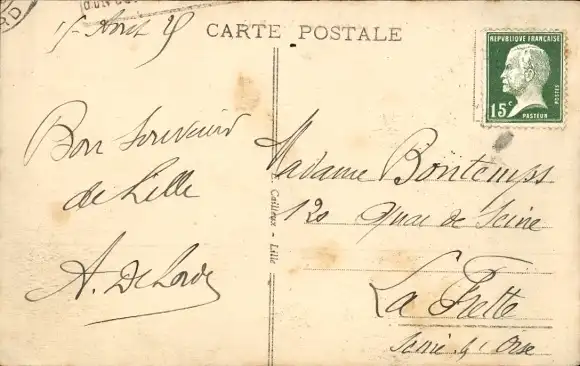 CARTE POSTALE
15 Avril 25
RÉPUBLIQUE FRANÇAISE
15c
POSTES
PASTEUR
Bon Souvenir
de Lille
A. Delorde
E. Cailteux - Lille
Madame Bontemps
120 Quai de Seine
La Frette
Seine & Oise